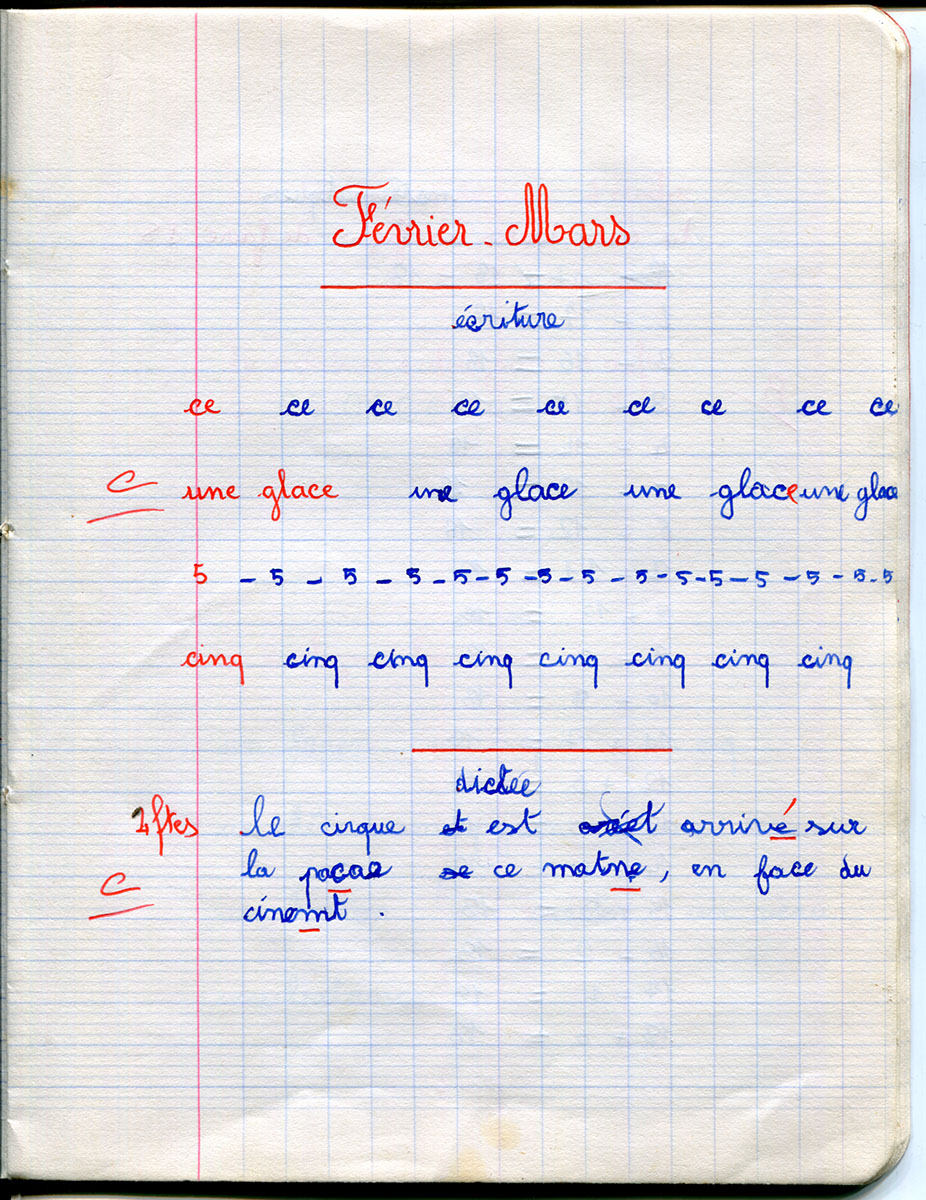 Février - Mars
écriture
ce ce ce ce ce ce ce ce ce
C une glace une glace une glace une glace
5 - 5 - 5 - 5 - 5 - 5 - 5 - 5 - 5 - 5 - 5 - 5 - 5 - 5 - 5
cinq cinq cinq cinq cinq cinq cinq cinq
dictée
4 ftes le cirque est arrivé sur
C la pacae ce matne, en face du
cinemt.